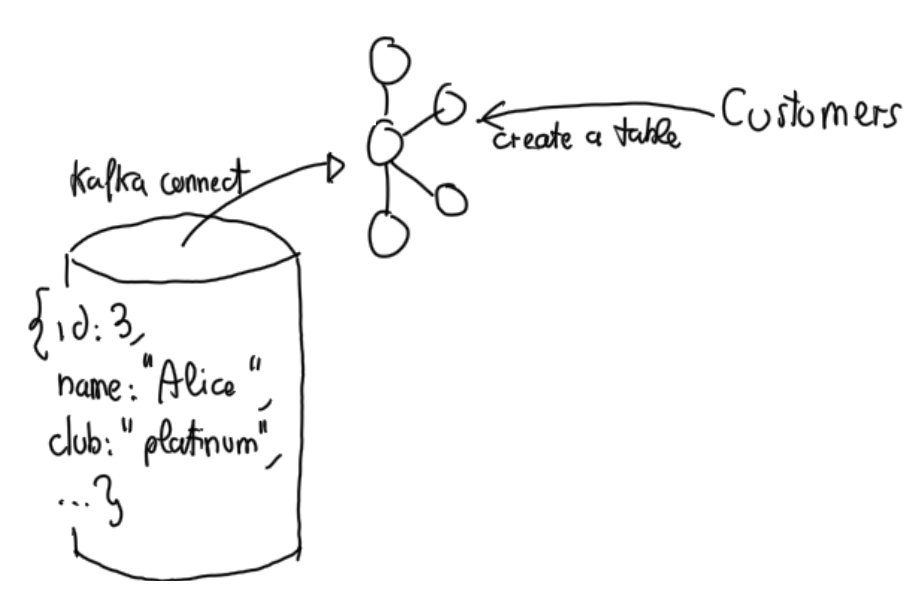 Customers
create a table
Kafka connect
{id: 3,
name: "Alice",
club: "platinum",
...}